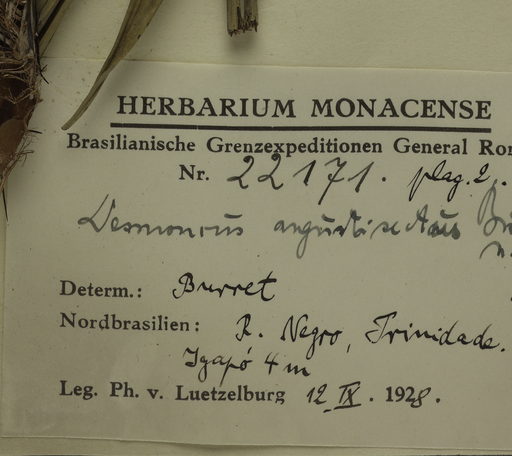 HERBARIUM MONACENSE
Brasilianische Grenzexpeditionen General Ron
Nr. 22171. plag. 2.
Desmoncus angustisectus Bu
Determ.: Burret
Nordbrasilien: R. Negro, Trinidade.
Igapó 4 m
Leg. Ph. v. Luetzelburg 12 IX. 1928.